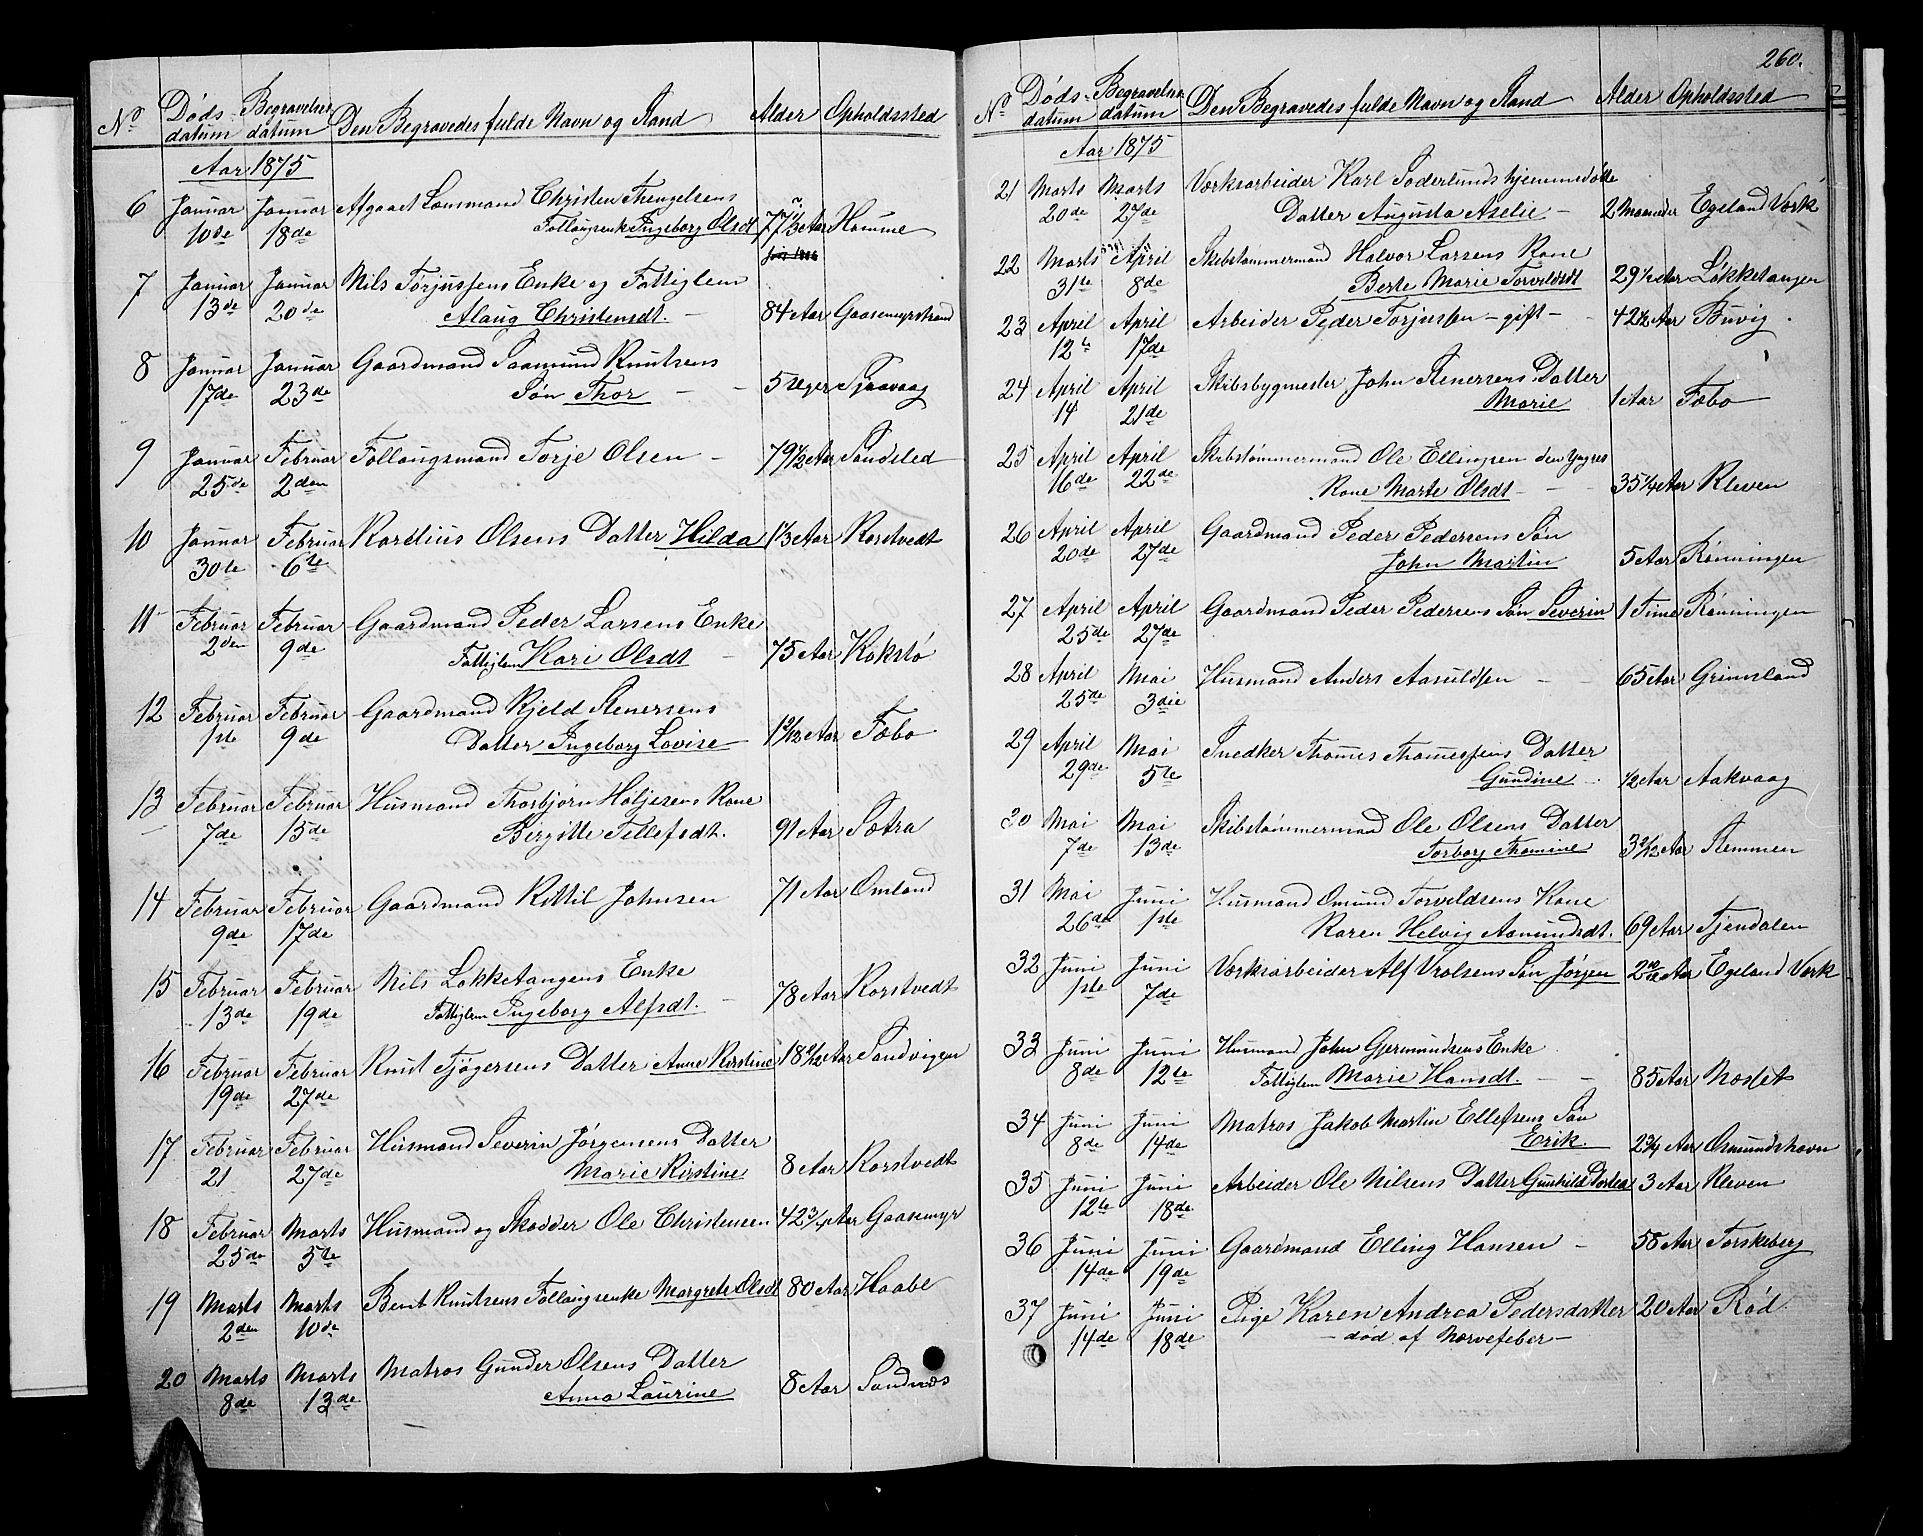 260.
No Døds- datum Begravelses datum Den Begravedes fulde Navn og Stand Alder Opholdssted
Aar 1875
6 Januar Januar Afgaaet Lensmand Christen Thengelsens
10de 18de Follaugsenke Ingeborg Olsdt 77 1/3 Aar Homme
7 Januar Januar Nils Torjussens Enke og Fattiglem
13de 20de Alaug Christensdt. — 84 Aar Gaasemyrstrand
8 Januar Januar Gaardmand Saamund Knutsens
17de 23de Søn Thor — — 5 Uger Sjaavaag
9 Januar Februar Follaugsmand Torje Olsen — 79 1/2 Aar Sandsled
25de 2den
10 Januar Februar Kardius Olsens Datter Hilda 1 1/3 Aar Korstvedt
30te 6te
11 Februar Februar Gaardmand Peder Larsens Enke
2den 9de Fattiglem Kari Olsdt — 75 Aar Kokstø
12 Februar Februar Gaardmand Kjeld Stenersens
1ste 9de Datter Ingeborg Lovise Aar Fæbo
13 Februar Februar Husmand Thorbjørn Holjesens Kone
7de 15de Birgitte Tellefsdt. 91 Aar Sætra
14 Februar Februar Gaardmand Kittil Johnsen 71 Aar Omland
9de 17de
15 Februar Februar Nils Løkketangens Enke
13de 19de Fattiglem Ingeborg Alfsdt. — 78 Aar Korstvedt
16 Februar Februar Knut Tjøgersens Datter Anne Kirstine 18 Aar Sandvigen
19de 27de
17 Februar Februar Husmand Severin Jørgensens Datter
21 27de Marie Kirstine 8 Aar Korstvedt
18 Februar Marts Husmand og Skodder Ole Christensen 42 3/4 Aar Gaasemyr
25de 5te
19 Marts Marts Bent Knutsens Follaugsenke Margrete Olsdt 80 Aar Haabe
2den 10de
20 Marts Marts Matros Gunder Olsens Datter
8de 13de Anna Laurine 8 Aar Sandnæs
No Døds- datum Begravelses datum Den Begravedes fulde Navn og Stand Alder Opholdssted
Aar 1875
21 Marts Marts Værksarbeider Karl Søderlunds hjemmedøbte
20de 27de Datter Augusta Aselie — 2 Maaneder Egeland Værk
22 Marts April Skibstømmermand Halvor Larsens Kone
31te 8de Berte Marie Torvildsdt 29 1/2 Aar Løkketangen
23 April April Arbeider Peder Torjussen — gift — 42 1/2 Aar Buvig.
12te 17de
24 April April Skibsbygmester John Stenersens Datter
14 21de Marie 1 Aar Fæbo
25 April April Skibstømmermand Ole Ellingsen den Yngres
16de 22de Kone Marte Olsdt — — 35 1/4 Aar Kleven
26 April April Gaardmand Peder Pedersens Søn
20de 27de John Martin 5 Aar Rønningen
27 April April Gaardmand Peder Pedersens Søn Severin 1 Time Rønningen
25de 27de
28 April Mai Husmand Anders Aasuldsen — — 65 Aar Grimsland
25de 3die
29 April Mai Snedker Thomes Thomessens Datter
29de 5te Gundine — 1/2 Aar Aakvaag
30 Mai Mai Skibstømmermand Ole Olsens Datter
7de 13de Torborg Thomine 3 Aar Stemmen
31 Mai Juni Husmand Omund Torvildsens Kone
26de 1ste Karen Helvig Aamundsdt. 69 Aar Tjendalen
32 Juni Juni Værksarbeider Alf Vrolsens Søn Jørgen 2 10/12 Aar Egeland Værk
1ste 7de
33 Juni Juni Husmand John Gjermundsens Enke
8de 12te Fattiglem Marie Hansdt. — — 85 Aar Næslet
34 Juni Juni Matros Jakob Martin Ellefsens Søn
8de 14de Erik. 2 3/4 Aar Osmundshavn
35 Juni Juni Arbeider Ole Nilsens Datter Gunhild 3 Aar Kleven
12te 18de
36 Juni Juni Gaardmand Elling Hansen — 58 Aar Torskeberg
14de 19de
37 Juni Juni Pige Karen Andrea Pedersdatter 20 Aar Rød.
14de 18de — død af Nervefeber —